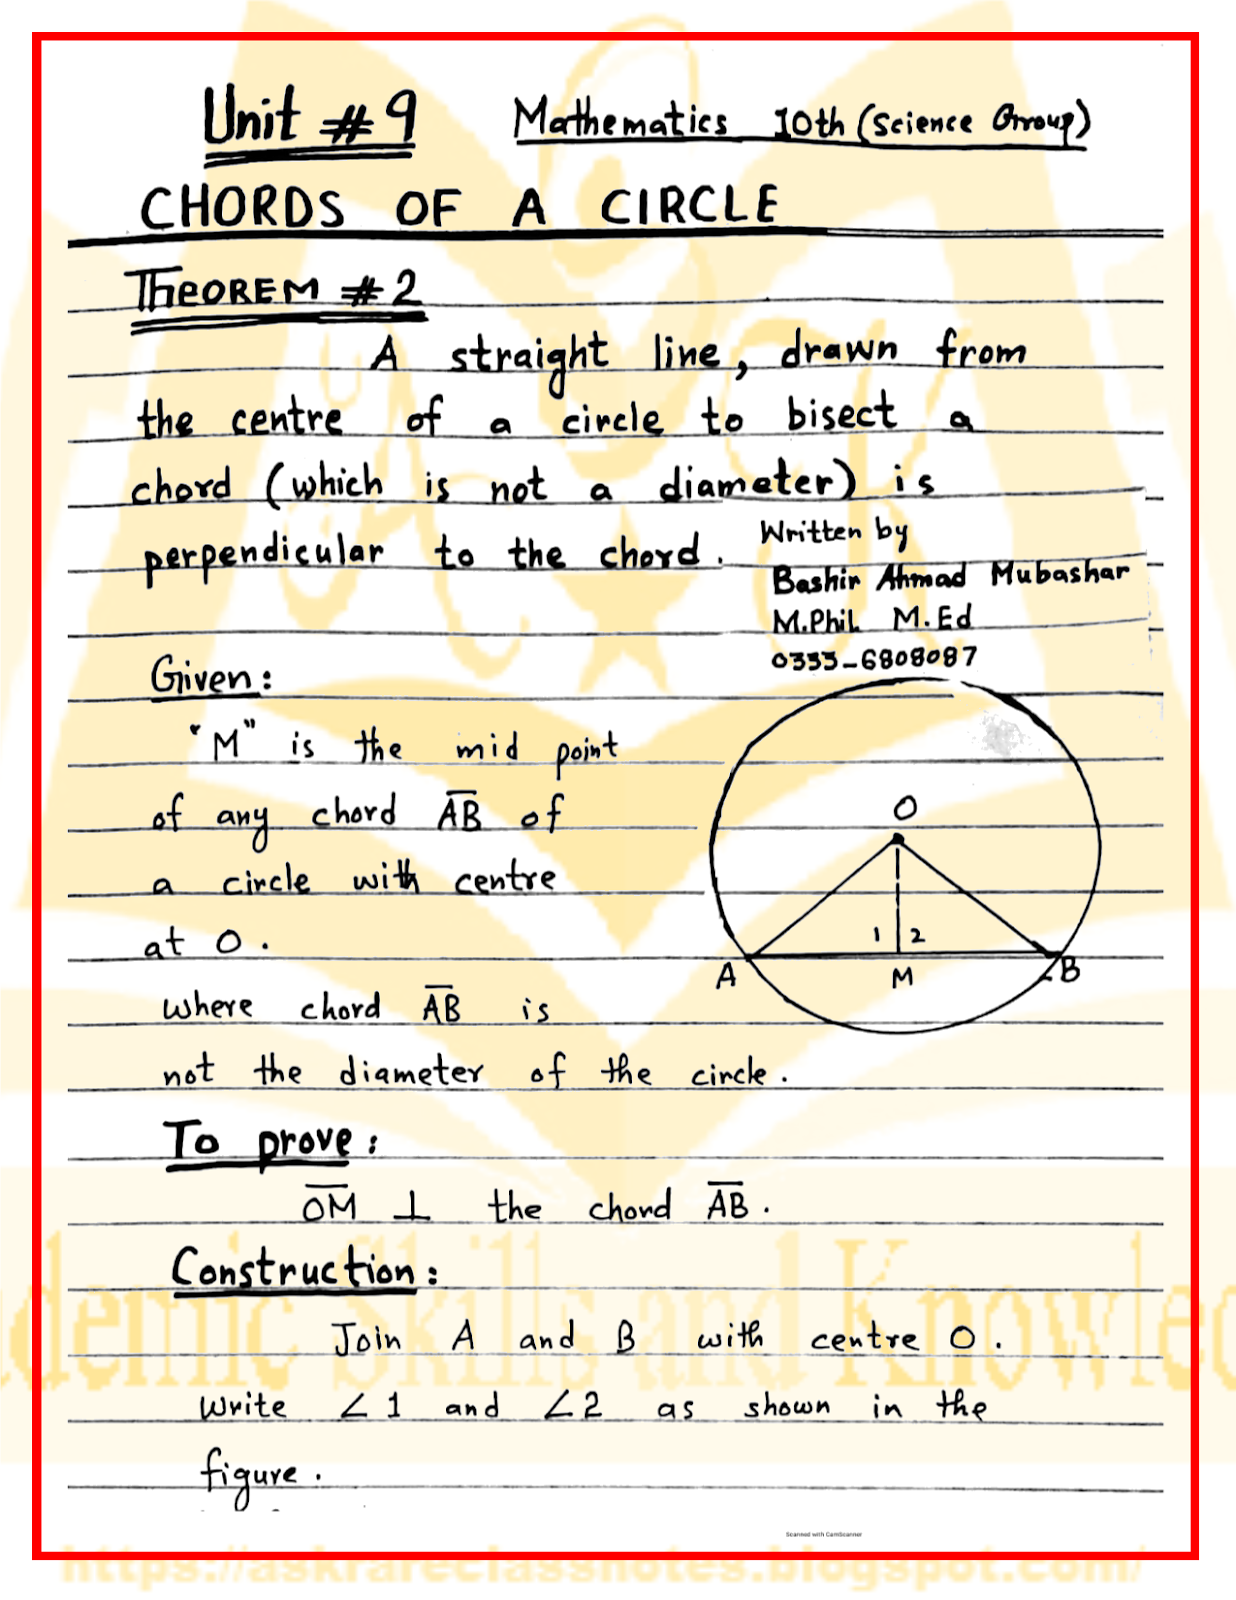 Unit # 9 Mathematics 10th (Science Group)
CHORDS OF A CIRCLE
THEOREM # 2
A straight line, drawn from
the centre of a circle to bisect a
chord (which is not a diameter) is
perpendicular to the chord.
Written by
Bashir Ahmad Mubashar
M.Phil M.Ed
0333-6808087
Given:
"M" is the mid point
of any chord A̅B̅ of
a circle with centre
at O.
where chord A̅B̅ is
not the diameter of the circle.
O
1 2
A M B
To prove:
O̅M̅ ⊥ the chord A̅B̅.
Construction:
Join A and B with centre O.
write ∠1 and ∠2 as shown in the
figure.
Scanned with CamScanner
demic Skills and Knowled
https://askrareclassnotes.blogspot.com/